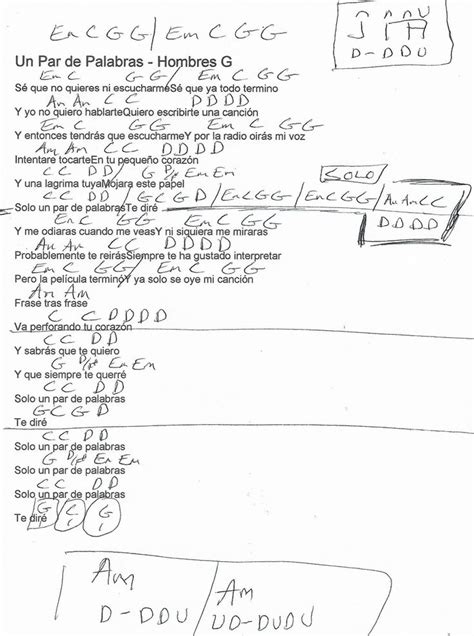 Em C G G / Em C G G
D - D D U
Un Par de Palabras - Hombres G
Em C G G / Em C G G
Sé que no quieres ni escucharmeSé que ya todo termino
Am Am C C D D D D
Y yo no quiero hablarteQuiero escribirte una canción
Em C G G Em C G G
Y entonces tendrás que escucharmeY por la radio oirás mi voz
Am Am C C D D D D
Intentare tocarteEn tu pequeño corazón
C C D D / G Em Em
Y una lagrima tuyaMojara este papel
SOLO
C C D D / G C G D / Em C G G / Em C G G / Am Am C C
Solo un par de palabrasTe diré
D D D D
Em C G G Em C G G
Y me odiaras cuando me veasY ni siquiera me miraras
Am Am C C D D D D
Probablemente te reirásSiempre te ha gustado interpretar
Em C G G / Em C G G
Pero la película terminóY ya solo se oye mi canción
Am Am
Frase tras frase
C C D D D D
Va perforando tu corazón
C C D D
Y sabrás que te quiero
G D/F# Em Em
Y que siempre te querré
C C D D
Solo un par de palabras
G C G D
Te diré
C C D D
Solo un par de palabras
G D/F# Em Em
Solo un par de palabras
C C D D
Solo un par de palabras
G C G
Te diré
Am / Am
D - D D U / U D - D U D U